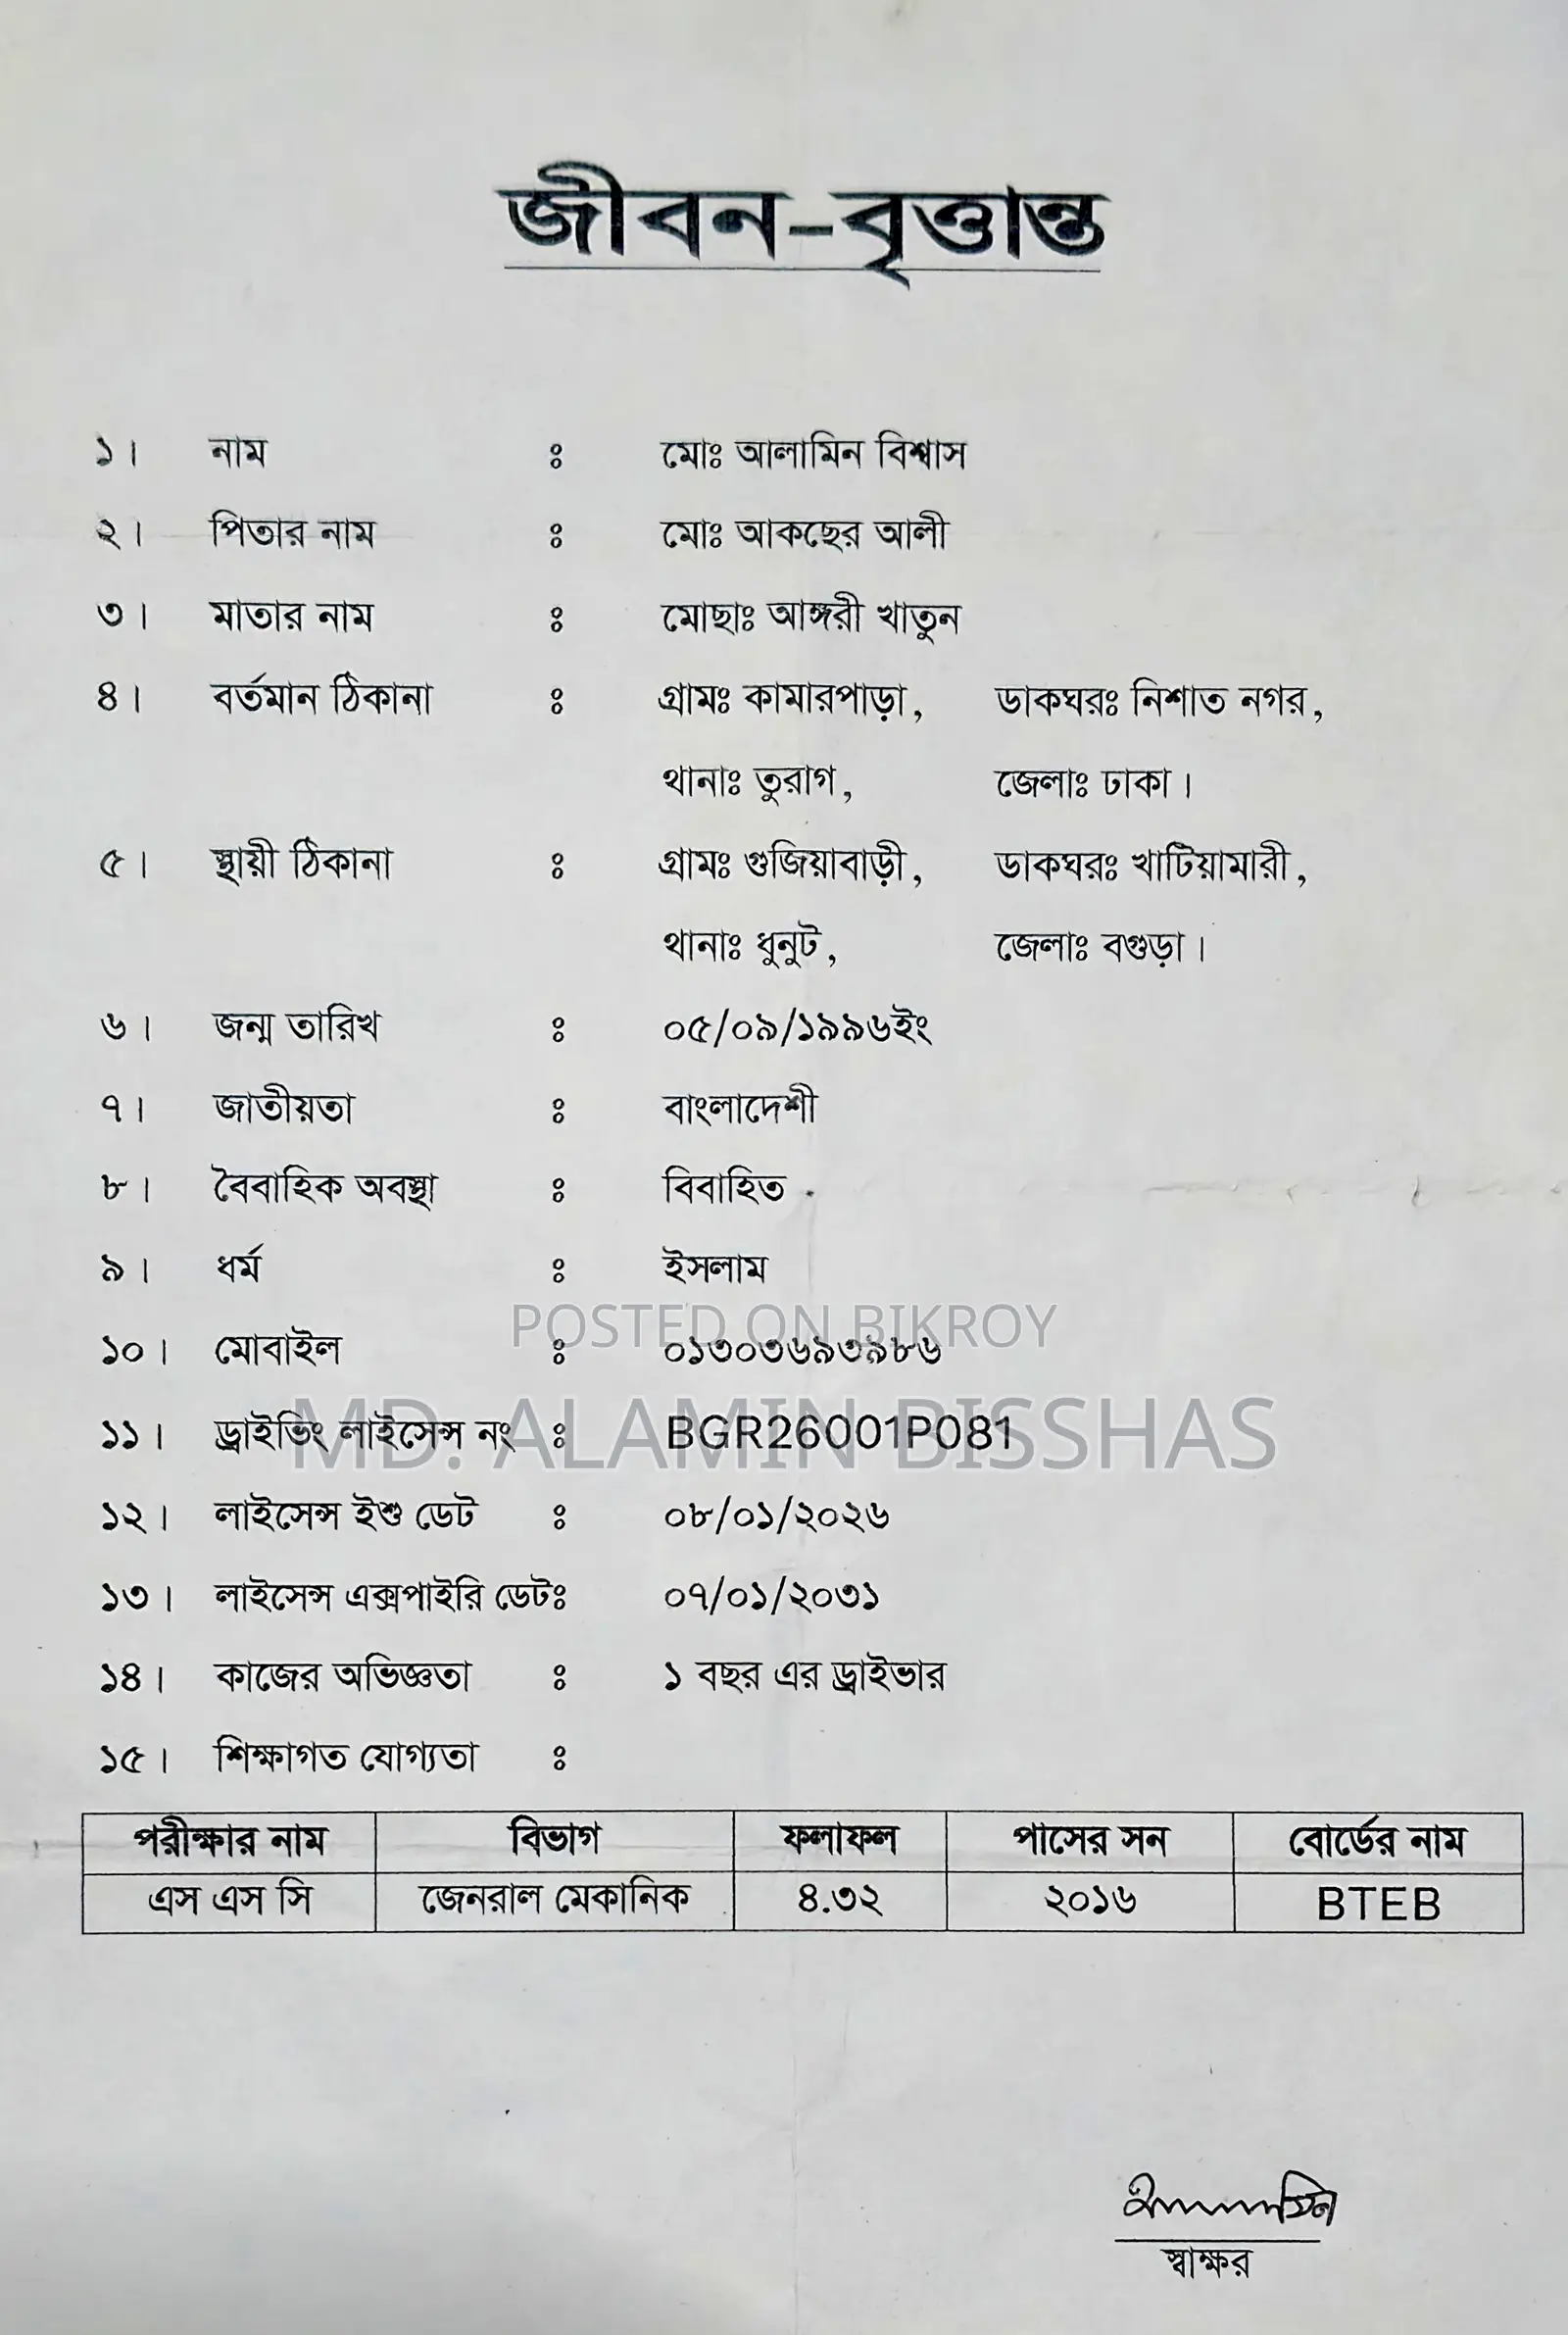 জীবন-বৃত্তান্ত
১। নাম ঃ মোঃ আলামিন বিশ্বাস
২। পিতার নাম ঃ মোঃ আকছের আলী
৩। মাতার নাম ঃ মোছাঃ আঙ্গরী খাতুন
৪। বর্তমান ঠিকানা ঃ গ্রামঃ কামারপাড়া, ডাকঘরঃ নিশাত নগর,
থানাঃ তুরাগ, জেলাঃ ঢাকা।
৫। স্থায়ী ঠিকানা ঃ গ্রামঃ গুজিয়াবাড়ী, ডাকঘরঃ খাটিয়ামারী,
থানাঃ ধুনুট, জেলাঃ বগুড়া।
৬। জন্ম তারিখ ঃ ০৫/০৯/১৯৯৬ইং
৭। জাতীয়তা ঃ বাংলাদেশী
৮। বৈবাহিক অবস্থা ঃ বিবাহিত
৯। ধর্ম ঃ ইসলাম
POSTED ON BIKROY
১০। মোবাইল ঃ ০১৩০৩৬৯৩৯৮৬
MD. ALAMIN BISSHAS
১১। ড্রাইভিং লাইসেন্স নং ঃ BGR26001P081
১২। লাইসেন্স ইশু ডেট ঃ ০৮/০১/২০২৬
১৩। লাইসেন্স এক্সপাইরি ডেটঃ ০৭/০১/২০৩১
১৪। কাজের অভিজ্ঞতা ঃ ১ বছর এর ড্রাইভার
১৫। শিক্ষাগত যোগ্যতা ঃ
পরীক্ষার নাম বিভাগ ফলাফল পাসের সন বোর্ডের নাম
এস এস সি জেনরাল মেকানিক ৪.৩২ ২০১৬ BTEB
স্বাক্ষর